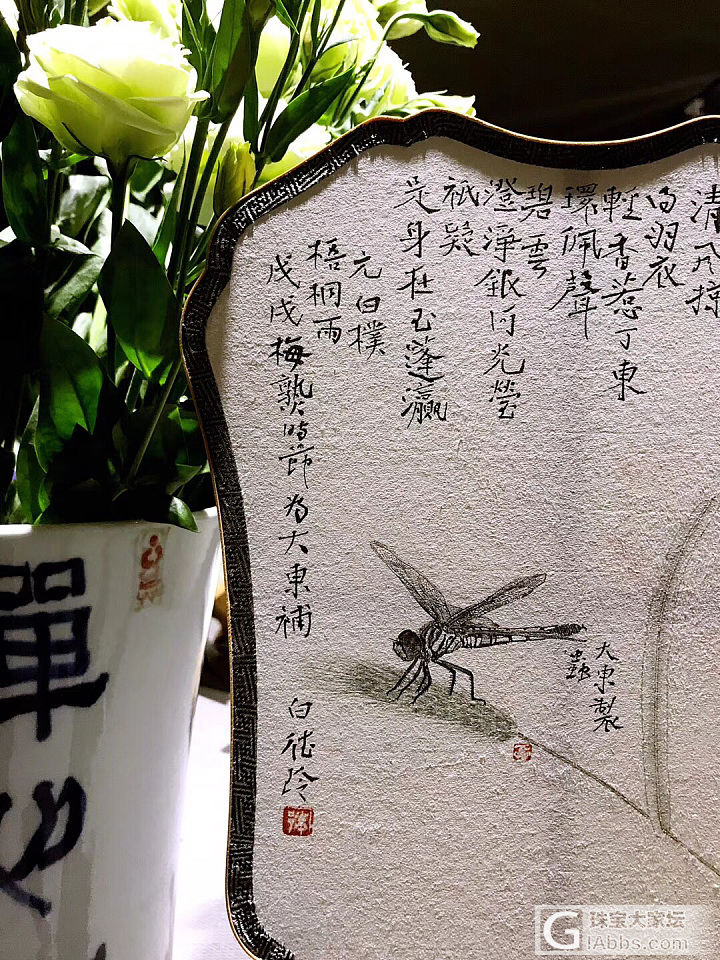 清風掠
羽衣
輕香惹丁東
環佩聲
碧雲
澄淨銀河光瑩
祇疑
是身在玉蓬瀛
元白樸
梧桐雨
戊戌梅熟時節為大東補
白德玲
大東製
蟲
單
珠宝大家坛
GIAbbs.com